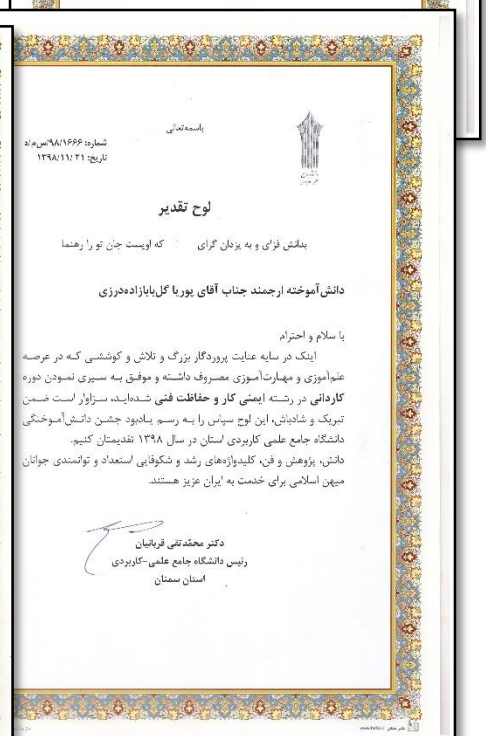 باسمه‌تعالی
شماره: ۹۸/۱۶۶۶/س‌م/د
تاریخ: ۱۳۹۸/۱۱/۲۱
لوح تقدیر
بدانش فزای و به یزدان گرای که اویست جان تو را رهنما
دانش‌آموخته ارجمند جناب آقای پوریا گل‌بابازاده‌درزی
با سلام و احترام
اینک در سایه عنایت پروردگار بزرگ و تلاش و کوششی که در عرصه
علم‌آموزی و مهارت‌آموزی مصروف داشته و موفق به سپری نمودن دوره
کاردانی در رشته ایمنی کار و حفاظت فنی شده‌اید، سزاوار است ضمن
تبریک و شادباش، این لوح سپاس را به رسم یادبود جشن دانش‌آموختگی
دانشگاه جامع علمی کاربردی استان در سال ۱۳۹۸ تقدیمتان کنیم.
دانش، پژوهش و فن، کلیدواژه‌های رشد و شکوفایی استعداد و توانمندی جوانان
میهن اسلامی برای خدمت به ایران عزیز هستند.
دکتر محمّدتقی قربانیان
رئیس دانشگاه جامع علمی-کاربردی
استان سمنان